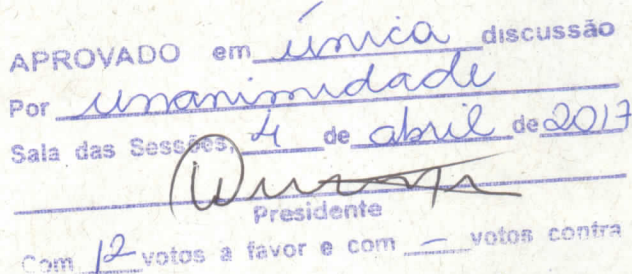 APROVADO em única discussão
Por unanimidade
Sala das Sessões, 4 de abril de 2017
Presidente
Com 12 votos a favor e com — votos contra